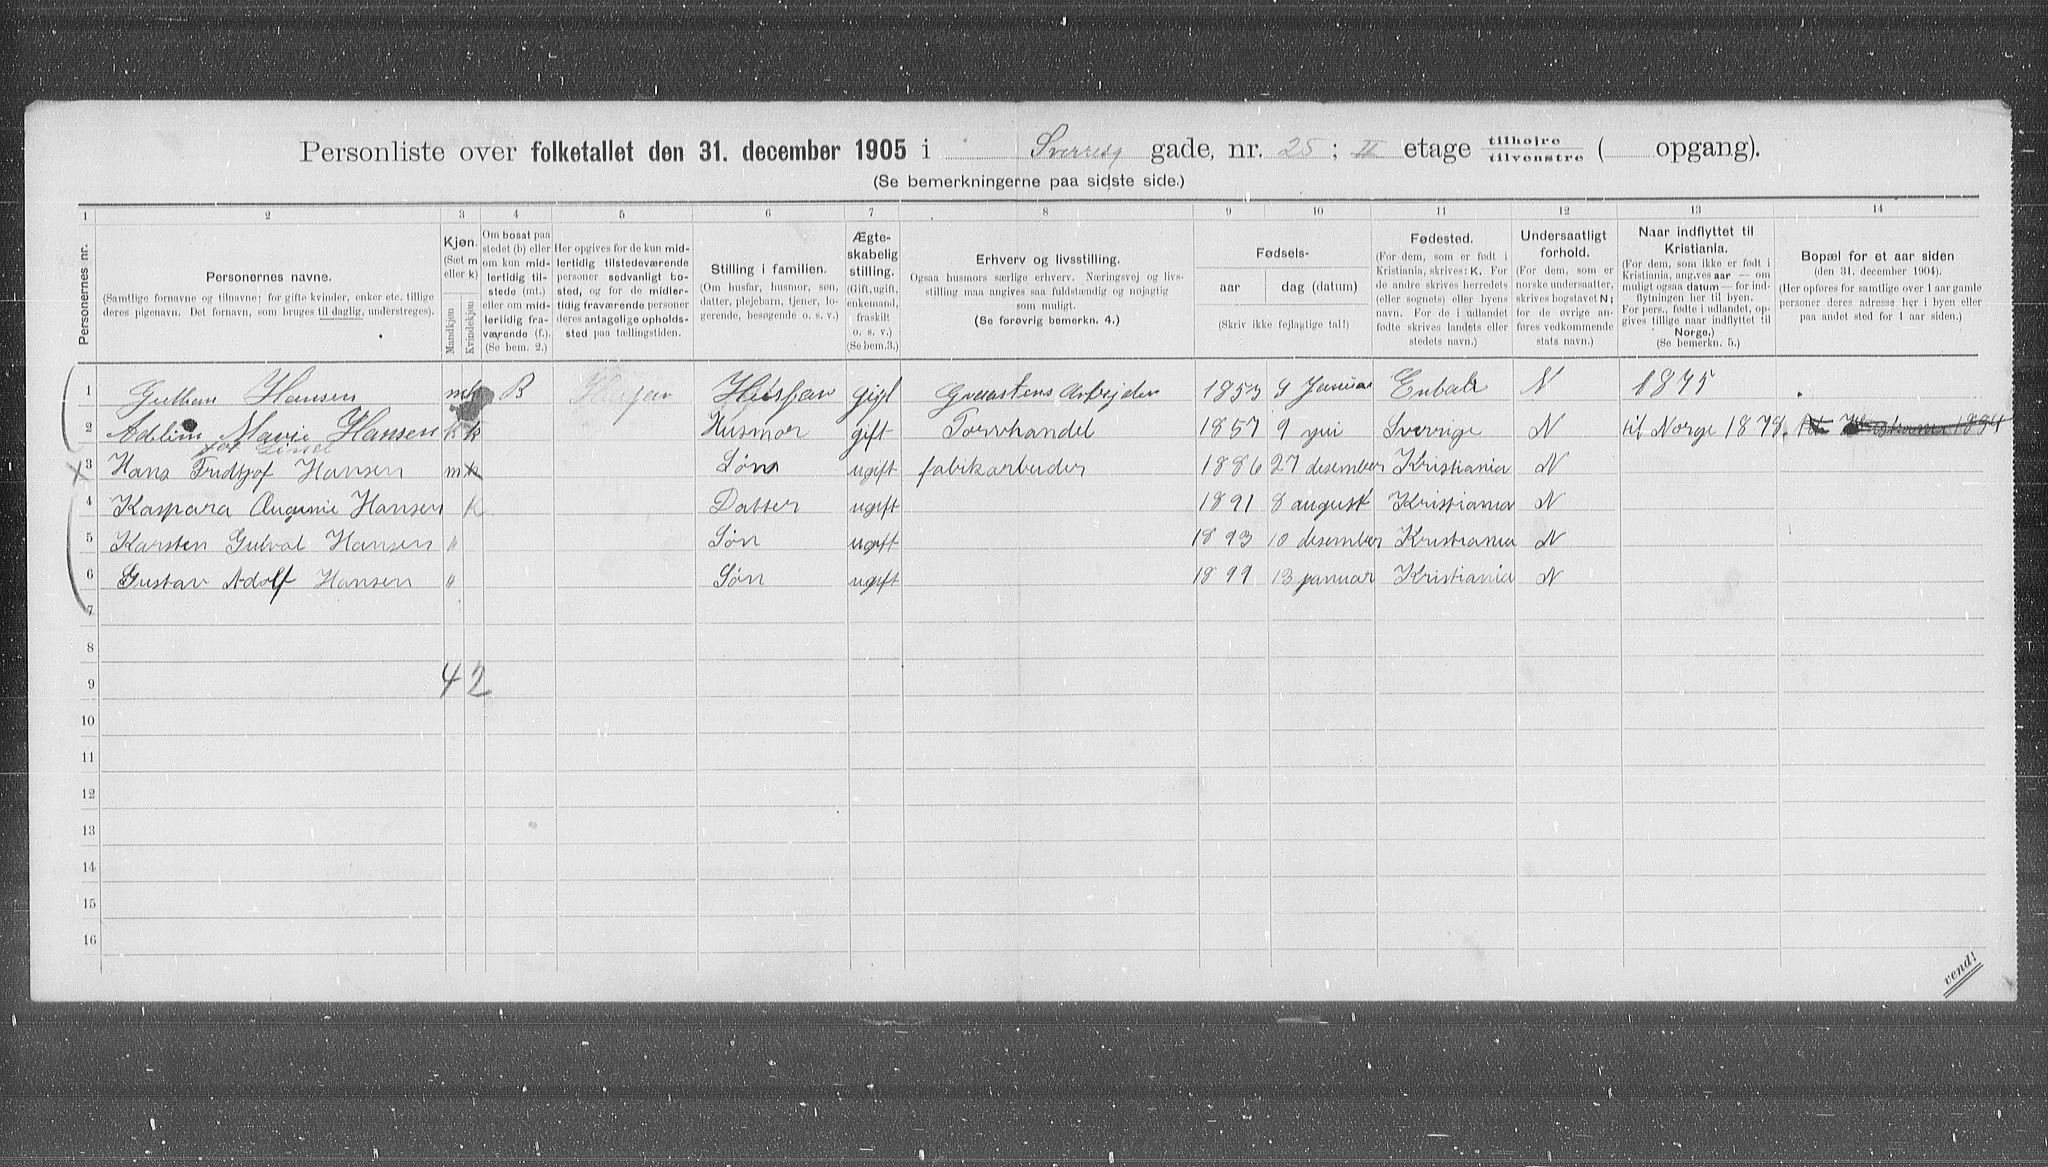 Personliste over folketallet den 31. december 1905 i Sverresg gade, nr. 25 ; II etage tilhøjre tilvenstre ( opgang).
(Se bemerkningerne paa sidste side.)
1 2 3 4 5 6 7 8 9 10 11 12 13 14
Personernes nr.
Personernes navne.
(Samtlige fornavne og tilnavne; for gifte kvinder, enker etc. tillige
deres pigenavn. Det fornavn, som bruges til daglig, understreges).
Kjøn.
(Sæt m
eller k)
Mandkjøn
Kvindekjøn
Om bosat paa
stedet (b) eller
om kun mid-
lertidig til-
stede (mt.)
eller om mid-
lertidig fra-
værende (f.).
(Se bem. 2.)
Her opgives for de kun mid-
lertidig tilstedeværende
personer sedvanlig bo-
sted, og for de midler-
tidig fraværende personer
deres antagelige opholds-
sted paa tællingstiden.
Stilling i familien.
(Om husfar, husmor, søn,
datter, plejebarn, tjener, lo-
gerende, besøgende o. s. v.)
Ægte-
skabelig
stilling.
(Gift, ugift,
enkemand,
fraskilt
o. s. v.)
(Se bem.3.)
Erhverv og livsstilling.
Ogsaa husmors særlige erhverv. Næringsvej og livs-
stilling maa angives saa fuldstændig og nøjagtig
som muligt.
(Se forøvrig bemerkn. 4.)
Fødsels-
aar dag (datum)
(Skriv ikke fejlagtige tal!)
Fødested.
(For dem, som er født i
Kristiania, skrives: K. For
de andre skrives herredets
(eller sognets) eller byens
navn. For de i udlandet
fødte skrives landets eller
stedets navn.)
Undersaatligt
forhold.
(For dem, som er
norske undersaatter,
skrives bogstavet N;
for de øvrige an-
føres vedkommende
stats navn.)
Naar indflyttet til
Kristiania.
(For dem, som ikke er født i
Kristiania, angives aar — om
muligt ogsaa datum — for ind-
flytningen her til byen.
For pers., fødte i udlandet, op-
gives tillige naar indflyttet til
Norge.)
(Se bemerkn. 5.)
Bopæl for et aar siden
(den 31. december 1904).
(Her opføres for samtlige over 1 aar gamle
personer deres adresse her i byen eller
paa andet sted for 1 aar siden.)
1 Hansen m B Husfar gift Arbejder 1853 9 Januar N 1875
2 Marie Hansen k Husmor gift Torvhandel 1857 9 Sverrige N til Norge 1878.
3 Hans Fridtjof Hansen m Søn ugift fabrikarbeider 1886 27 desember Kristiania N
4 Kaspara Eugenie Hansen k Datter ugift 1891 8 august Kristiania N
5 Karsten Hansen " Søn ugift 1893 10 desember Kristiania N
6 Gustav Adolf Hansen " Søn ugift 1899 13 januar Kristiania N
7
8
4 2
9
10
11
12
13
14
15
16
vend!